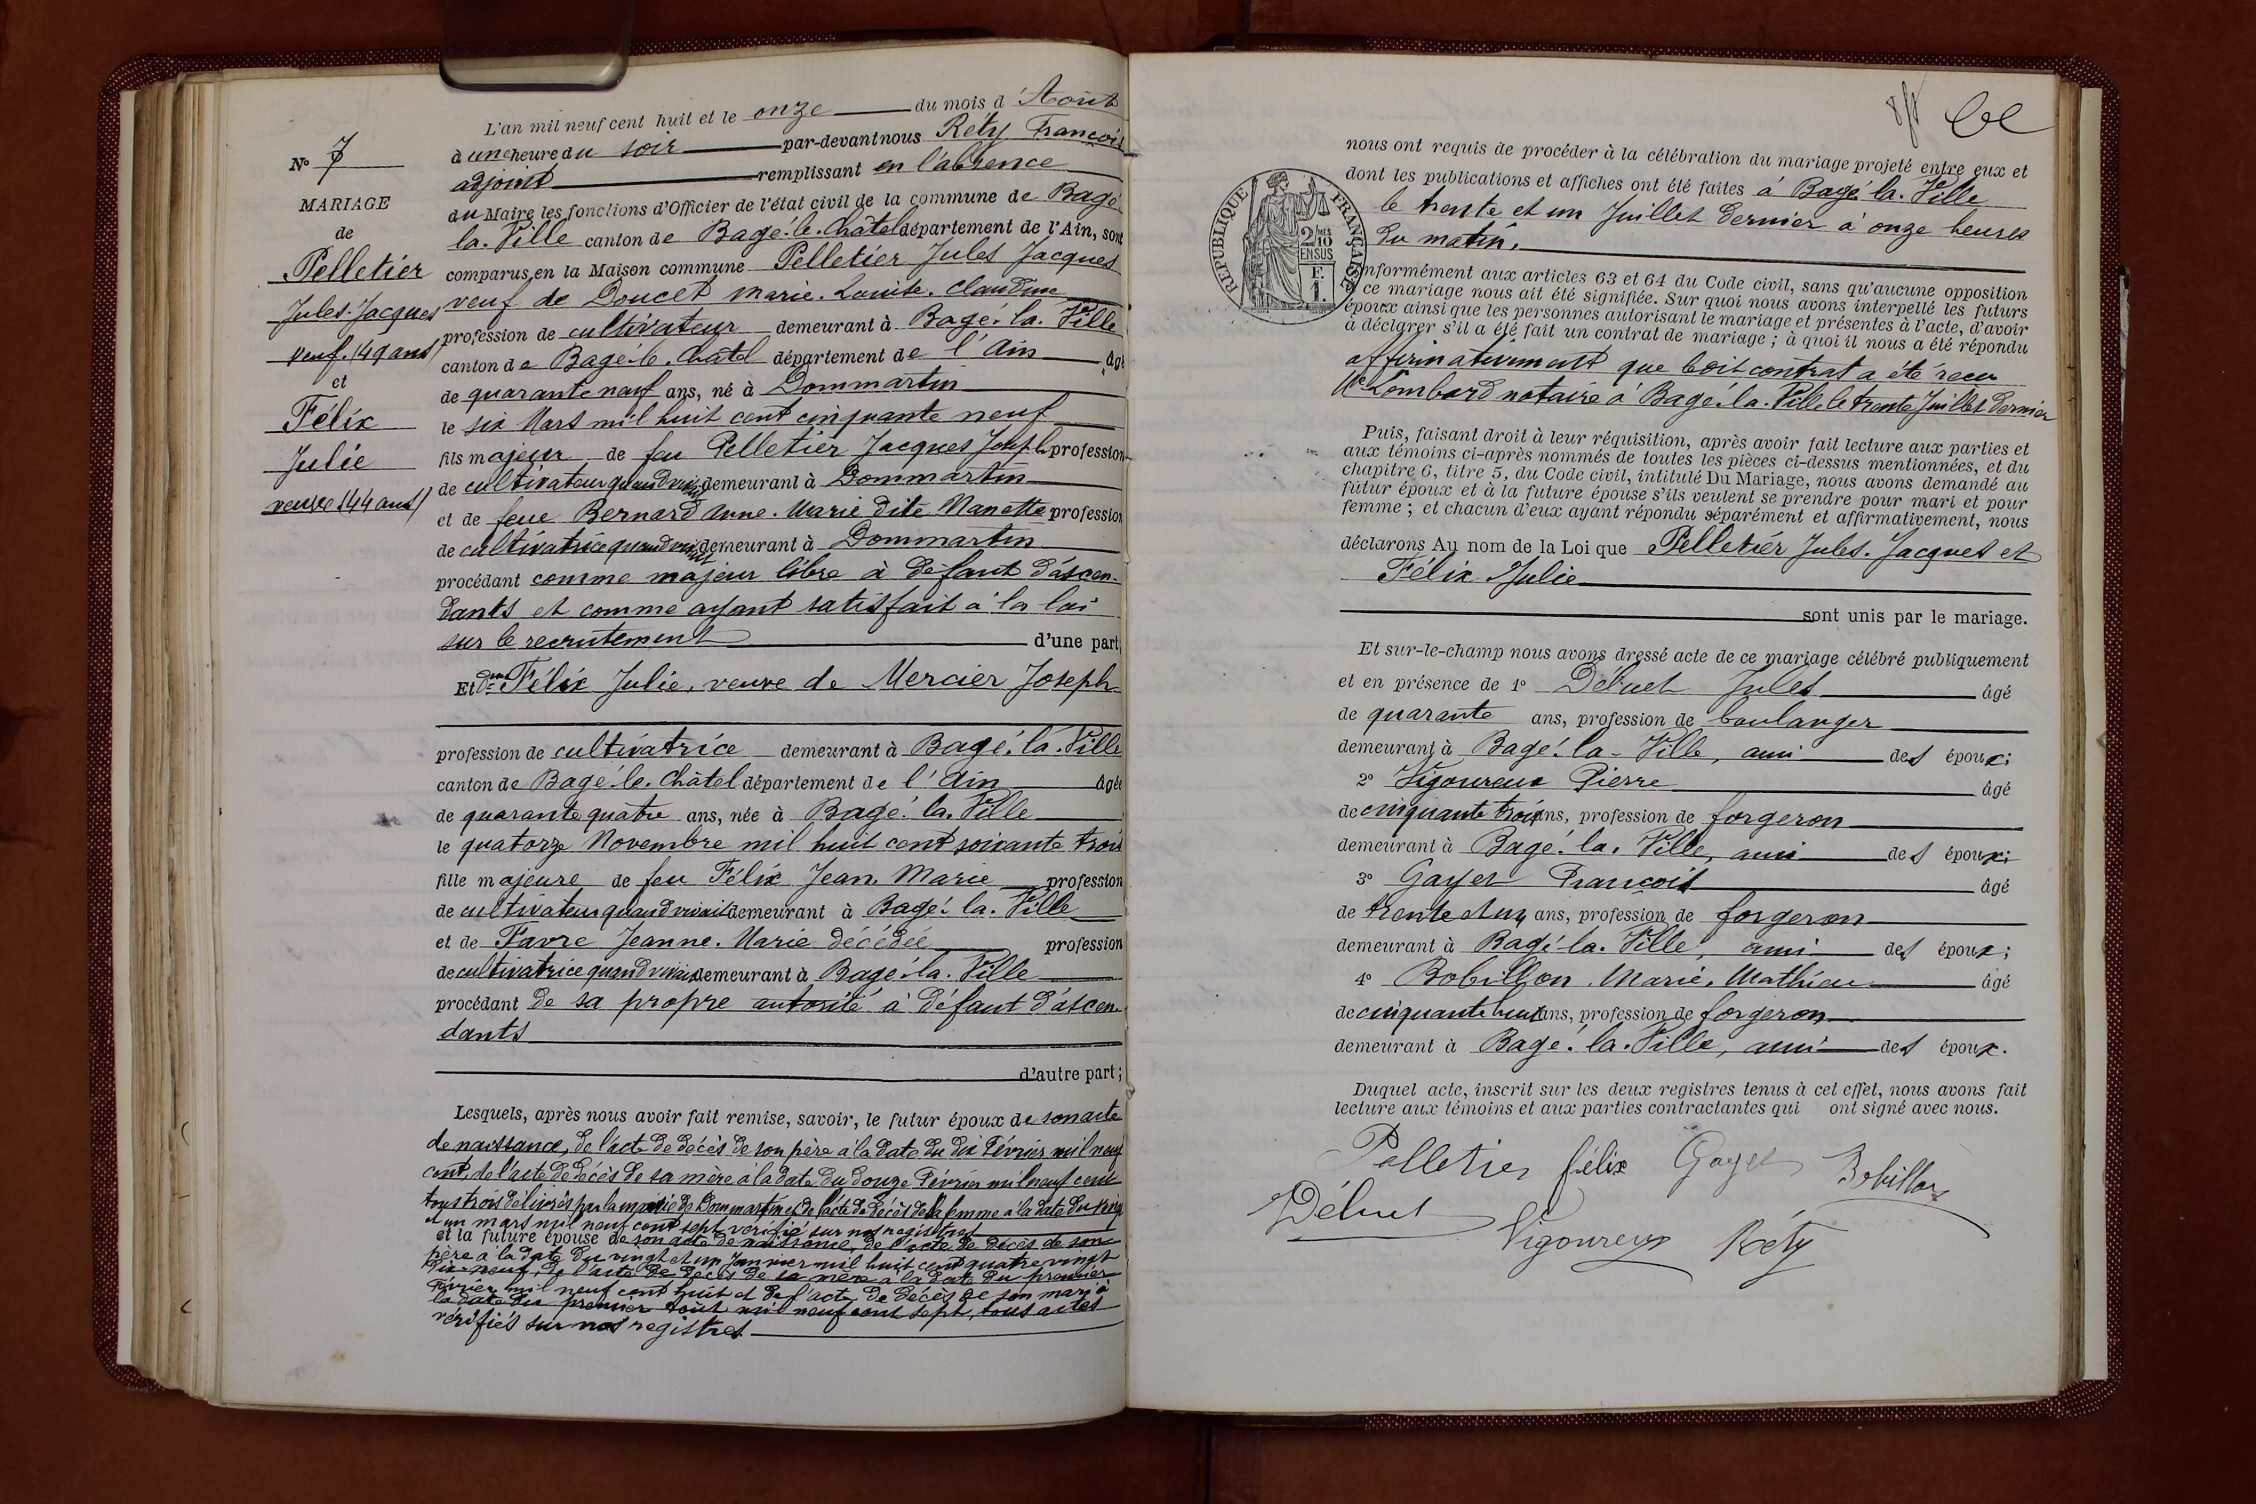 L'an mil neuf cent huit et le onze du mois d'Août
à une heure du soir par-devant nous Réty François
adjoint remplissant en l'absence
du Maire les fonctions d'Officier de l'état civil de la commune de Bagé
la-Ville canton de Bagé-le-Châtel département de l'Ain, sont
comparus, en la Maison commune Pelletier Jules Jacques
veuf de Doucet Marie-Louise-Claudine
profession de cultivateur demeurant à Bagé-la-Ville
canton de Bagé-le-Châtel département de l'Ain âgé
de quarante neuf ans, né à Dommartin
le six Mars mil huit cent cinquante neuf
fils majeur de feu Pelletier Jacques Joseph profession
de cultivateur quand vivait demeurant à Dommartin
et de feue Bernard Anne-Marie dite Nanette profession
de cultivatrice quand vivait demeurant à Dommartin
procédant comme majeur libre à défaut d'ascen-
dants et comme ayant satisfait à la loi
sur le recrutement d'une part;
Et dme Félix Julie, veuve de Mercier Joseph
profession de cultivatrice demeurant à Bagé-la-Ville
canton de Bagé-le-Châtel département de l'Ain âgée
de quarante quatre ans, née à Bagé-la-Ville
le quatorze Novembre mil huit cent soixante trois
fille majeure de feu Félix Jean-Marie profession
de cultivateur quand vivait demeurant à Bagé-la-Ville
et de Favre Jeanne-Marie décédée profession
de cultivatrice quand vivait demeurant à Bagé-la-Ville
procédant de sa propre autorité à défaut d'ascen-
dants
d'autre part;
Lesquels, après nous avoir fait remise, savoir, le futur époux de son acte
de naissance, de l'acte de décès de son père à la date du dix Février mil neuf
cent, de l'acte de décès de sa mère à la date du douze Février mil neuf cent
tous trois délivrés par la mairie de Dommartin et de l'acte de décès de sa femme à la date du vingt
et un mars mil neuf cent sept vérifié sur nos registres
et la future épouse de son acte de naissance, de l'acte de décès de son
père à la date du vingt et un Janvier mil huit cent quatre vingt
dix-neuf, de l'acte de décès de sa mère à la date du premier
Février mil neuf cent huit et de l'acte de décès de son mari à
la date du premier Août mil neuf cent sept, tous actes
vérifiés sur nos registres
No 7
MARIAGE
de
Pelletier
Jules-Jacques
veuf (49 ans)
et
Félix
Julie
veuve (44 ans)
REPUBLIQUE FRANÇAISE
2/10
EN SUS
F.
1.
nous ont requis de procéder à la célébration du mariage projeté entre eux et
dont les publications et affiches ont été faites à Bagé-la-Ville
le trente et un Juillet dernier à onze heures
du matin.
onformément aux articles 63 et 64 du Code civil, sans qu'aucune opposition
à ce mariage nous ait été signifiée. Sur quoi nous avons interpellé les futurs
époux ainsi que les personnes autorisant le mariage et présentes à l'acte, d'avoir
à déclarer s'il a été fait un contrat de mariage; à quoi il nous a été répondu
affirmativement que ledit contrat a été reçu
Me Lombard notaire à Bagé-la-Ville le trente Juillet dernier
Puis, faisant droit à leur réquisition, après avoir fait lecture aux parties et
aux témoins ci-après nommés de toutes les pièces ci-dessus mentionnées, et du
chapitre 6, titre 5, du Code civil, intitulé Du Mariage, nous avons demandé au
futur époux et à la future épouse s'ils veulent se prendre pour mari et pour
femme; et chacun d'eux ayant répondu séparément et affirmativement, nous
déclarons Au nom de la Loi que Pelletier Jules-Jacques et
Félix Julie
sont unis par le mariage.
Et sur-le-champ nous avons dressé acte de ce mariage célébré publiquement
et en présence de 1° Déluet Jules âgé
de quarante ans, profession de boulanger
demeurant à Bagé-la-Ville, ami des époux;
2° Vigoureux Pierre âgé
de cinquante trois ans, profession de forgeron
demeurant à Bagé-la-Ville, ami des époux;
3° Gayet François âgé
de trente et un ans, profession de forgeron
demeurant à Bagé-la-Ville, ami des époux;
4° Bobillon Marie-Mathieu âgé
de cinquante huit ans, profession de forgeron
demeurant à Bagé-la-Ville, ami des époux.
Duquel acte, inscrit sur les deux registres tenus à cet effet, nous avons fait
lecture aux témoins et aux parties contractantes qui ont signé avec nous.
Pelletier félix Gayet Bobillon
Déluet Vigoureux Réty